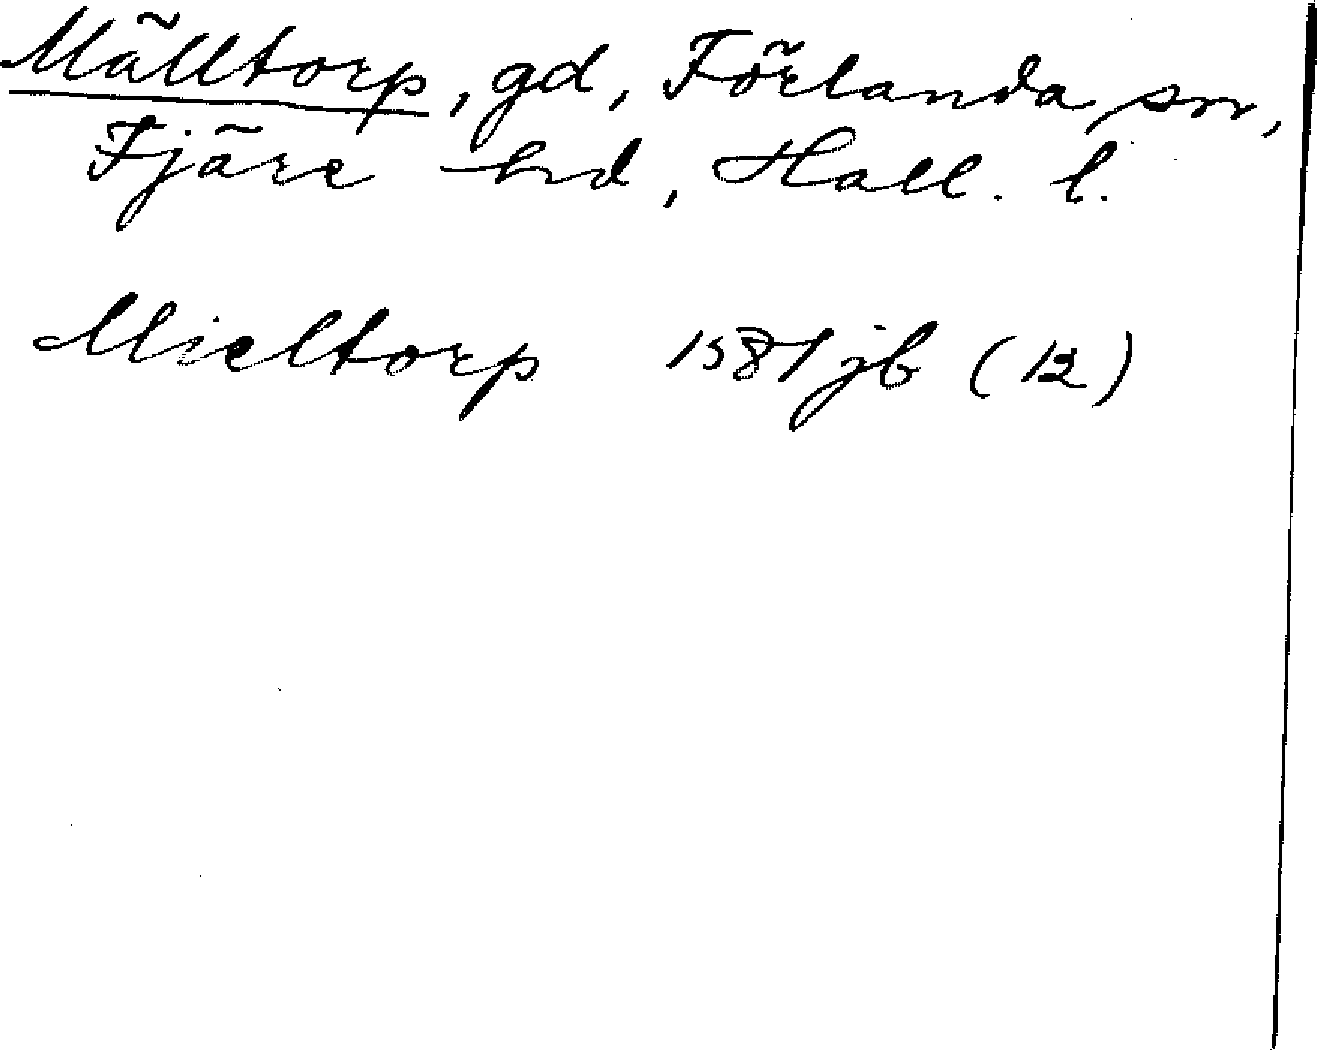 Mälltorp, gd, Förlanda sn,
Fjäre hd, Hall. l.
Mieltorp 1581 jb (12)